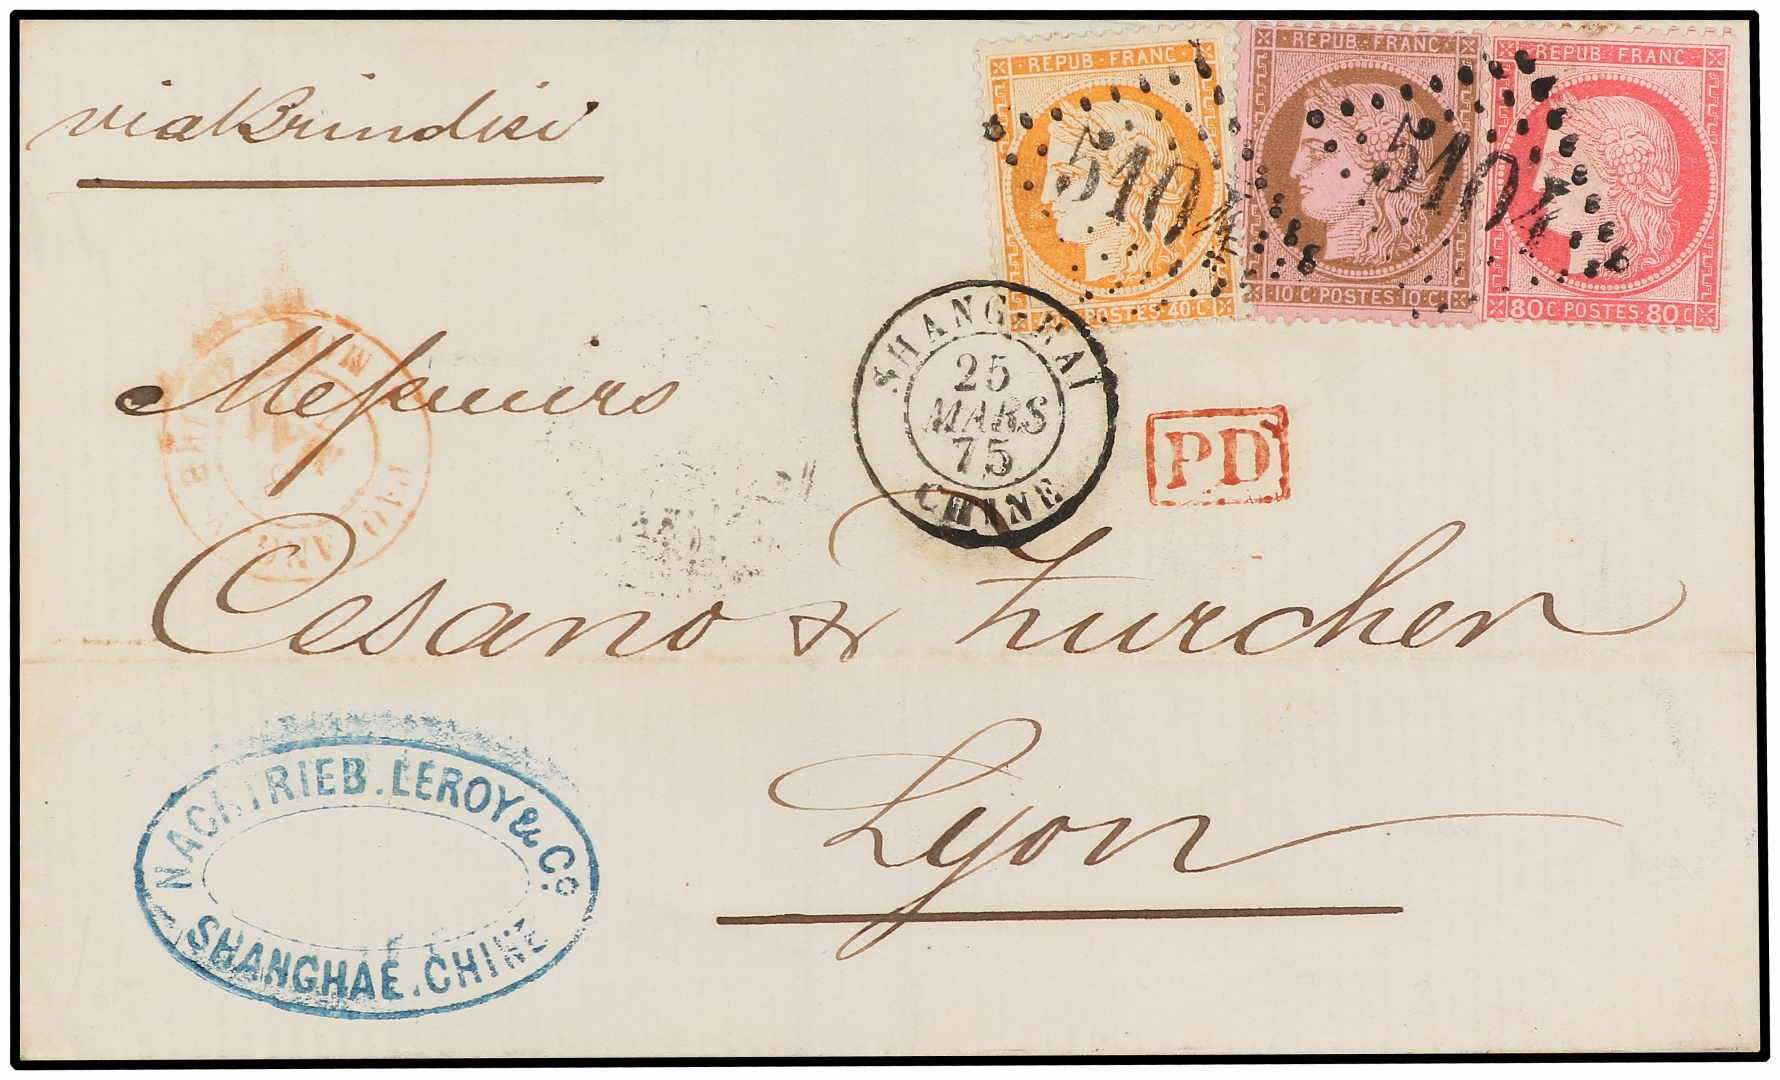 via Brindisi
REPUB·FRANC
POSTES·40C
REPUB·FRANC
10C·POSTES·10C
REPUB·FRANC
80C·POSTES·80C
5104
5104
SHANG-HAI
25
MARS
75
CHINE
PD
Messieurs
Cesano & Zurcher
Lyon
NACHTRIEB.LEROY & Co.
SHANGHAE.CHINE